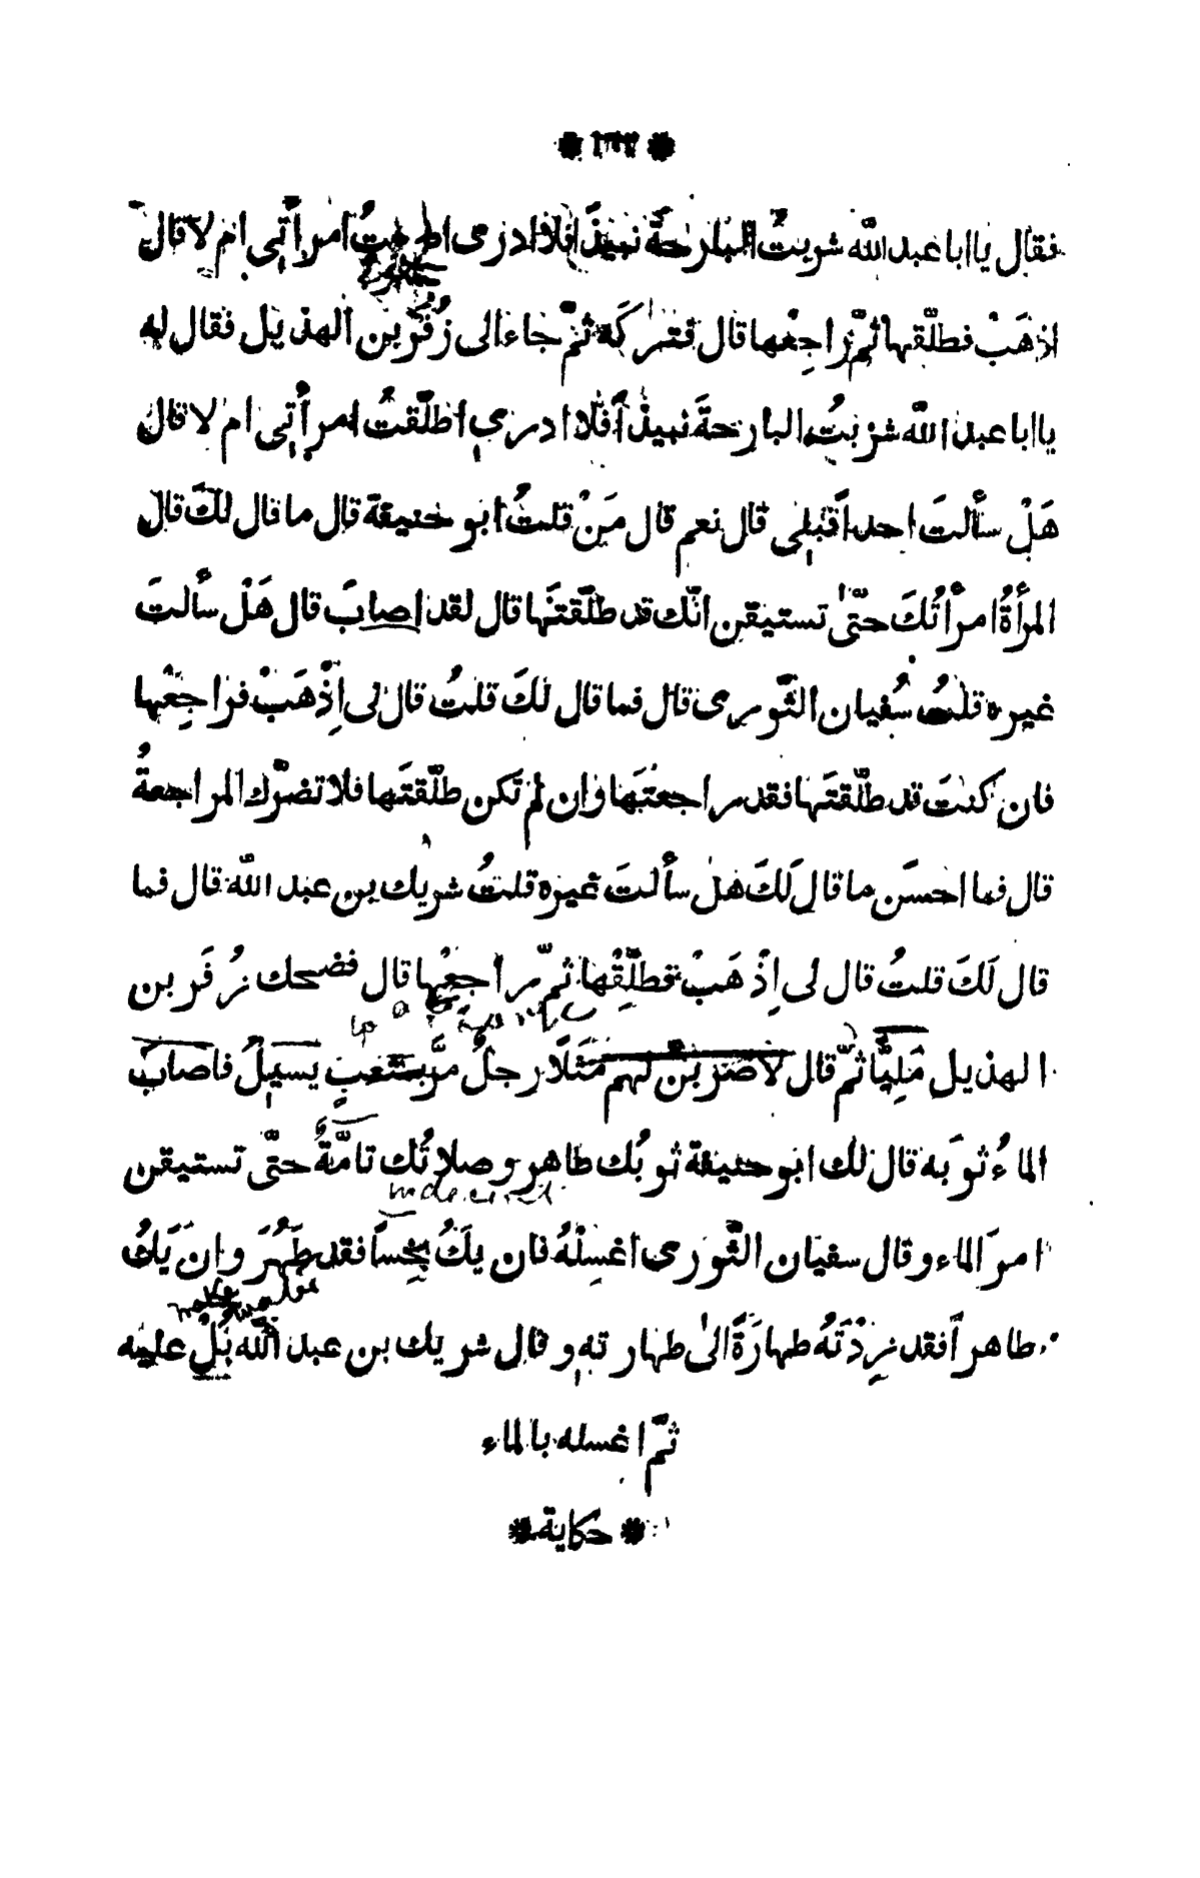 فقال يا ابا عبد الله شربتُ البارحةَ نبيذًا فلا ادرى اطلقتُ امرأتى ام لا قال
اذهَبْ فطلّقها ثمّ راجِعْها قال فتركَه ثمّ جاء الى زُفَرَ بن الهذيل فقال له
يا ابا عبد الله شربتُ البارحةَ نبيذًا فلا ادرى اطلّقتُ امرأتى ام لا قال
هَلْ سألتَ احداً قَبْلى قال نعم قال مَنْ قلتُ ابو حنيفة قال ما قال لكَ قال
المرأةُ امرأتُكَ حتّى تستيقن انّك قد طلّقتَها قال لقد اصابَ قال هَلْ سألتَ
غيره قلتُ سُفيان الثّورى قال فما قال لكَ قلتُ قال لى اِذْهَبْ فراجِعْها
فان كنتَ قد طلّقتَها فقد راجعتَها وان لم تكن طلّقتَها فلا تضرّك المراجعةُ
قال فما احسَن ما قال لَكَ هل سألتَ غيره قلتُ شريك بن عبد الله قال فما
قال لَكَ قلتُ قال لى اِذْهَبْ فطلِّقْها ثمّ راجِعْها قال فضحك زُفَر بن
الهذيل مَلِيًّا ثمّ قال لاَضْرِبَنّ لهم مَثَلًا رجلٌ مرَّ بمَثْعَبٍ يَسيلُ فاصابَ
الماءُ ثوبَه قال لك ابو حنيفة ثوبُك طاهر وصلاتُك تامّةٌ حتّى تستيقن
امرَ الماء وقال سفيان الثّورى اغسِلْهُ فان يكُ نجِساً فقد طَهُرَ وان يَكُ
طاهراً فقد زِدْتَهُ طهارَةً الىٰ طهارته وقال شريك بن عبد الله بُلْ عليه
ثمّ اغسله بالماء
* حكاية *